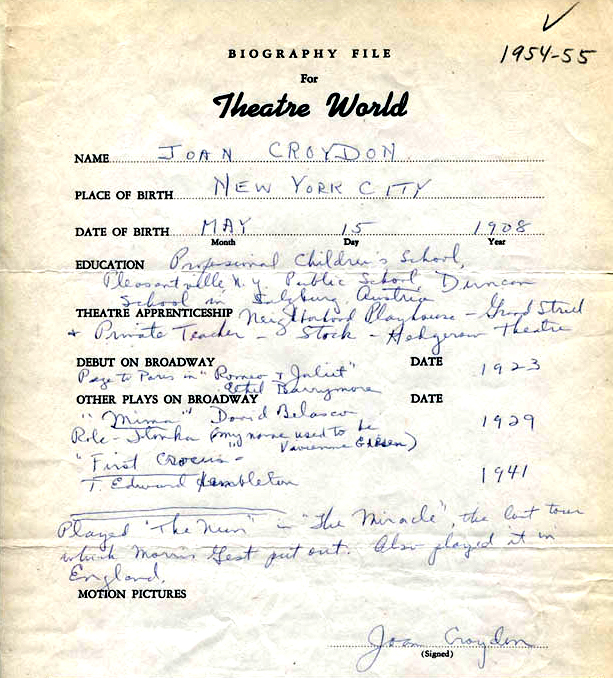 ✓
1954-55
BIOGRAPHY FILE
For
Theatre World
NAME JOAN CROYDON
PLACE OF BIRTH NEW YORK CITY
DATE OF BIRTH MAY 15 1908
Month Day Year
EDUCATION Professional Children's School,
Pleasantville N.Y. Public School, Duncan
School in Salzburg, Austria
THEATRE APPRENTICESHIP Neighborhood Playhouse - Grand Street
+ Private Teacher - Stock - Hedgerow Theatre
DEBUT ON BROADWAY DATE
Page to Paris in "Romeo + Juliet" 1923
Ethel Barrymore
OTHER PLAYS ON BROADWAY DATE
"Mima" David Belasco 1929
Role - (my name used to be
Vivienne )
"First Crocus" - 1941
T. Edward Hambleton
Played "The Nun" in "The Miracle", the last tour
which Morris Gest put out. Also played it in
England.
MOTION PICTURES
Joan Croydon
(Signed)